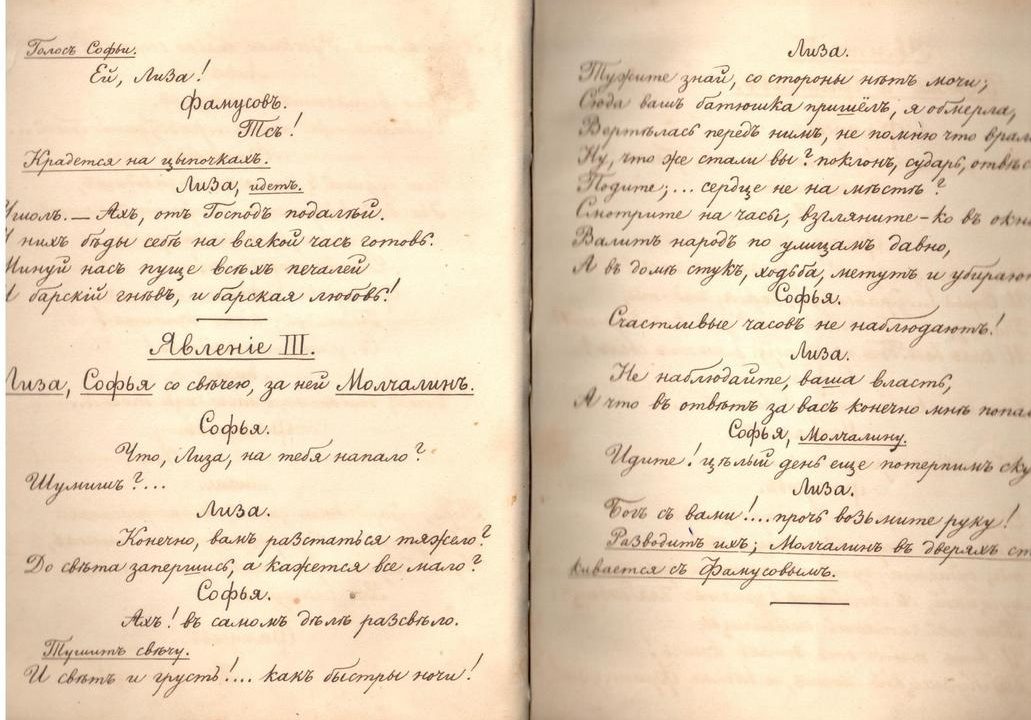 Голосъ Софьи.
Ей, Лиза!
Фамусовъ.
Тсъ!
Крадется на цыпочкахъ.
Лиза, идетъ.
Ушолъ. — Ахъ, отъ Господъ подалѣй.
У нихъ бѣды себѣ на всякой часъ готовь.
Минуй насъ пуще всѣхъ печалей
И барскій гнѣвъ, и барская любовь!
Явленіе III.
Лиза, Софья со свѣчею, за ней Молчалинъ.
Софья.
Что, Лиза, на тебя напало?
Шумишь?...
Лиза.
Конечно, вамъ разстаться тяжело?
До свѣта запершись, а кажется все мало?
Софья.
Ахъ! въ самомъ дѣлѣ разсвѣло.
Тушитъ свѣчу.
И свѣтъ и грусть!... какъ быстры ночи!
Лиза.
Тужите знай, со стороны нѣтъ мочи;
Сюда вашъ батюшка пришёлъ, я обмерла,
Вертѣлась передъ нимъ, не помню что врала
Ну, что же стали вы? поклонъ, сударь,
Подите;... сердце не на мѣстѣ?
Смотрите на часы, взгляните-ко въ
Валитъ народъ по улицамъ давно,
А въ домѣ стукъ, ходьба, метутъ и
Софья.
Счастливые часовъ не наблюдаютъ!
Лиза.
Не наблюдайте, ваша власть,
А что въ отвѣтъ за васъ конечно мнѣ
Софья, Молчалину.
Идите! цѣлый день еще потерпимъ
Лиза.
Богъ съ вами!.... прочь возьмите руку!
Разводитъ ихъ; Молчалинъ въ дверяхъ ст
кивается съ Фамусовымъ.